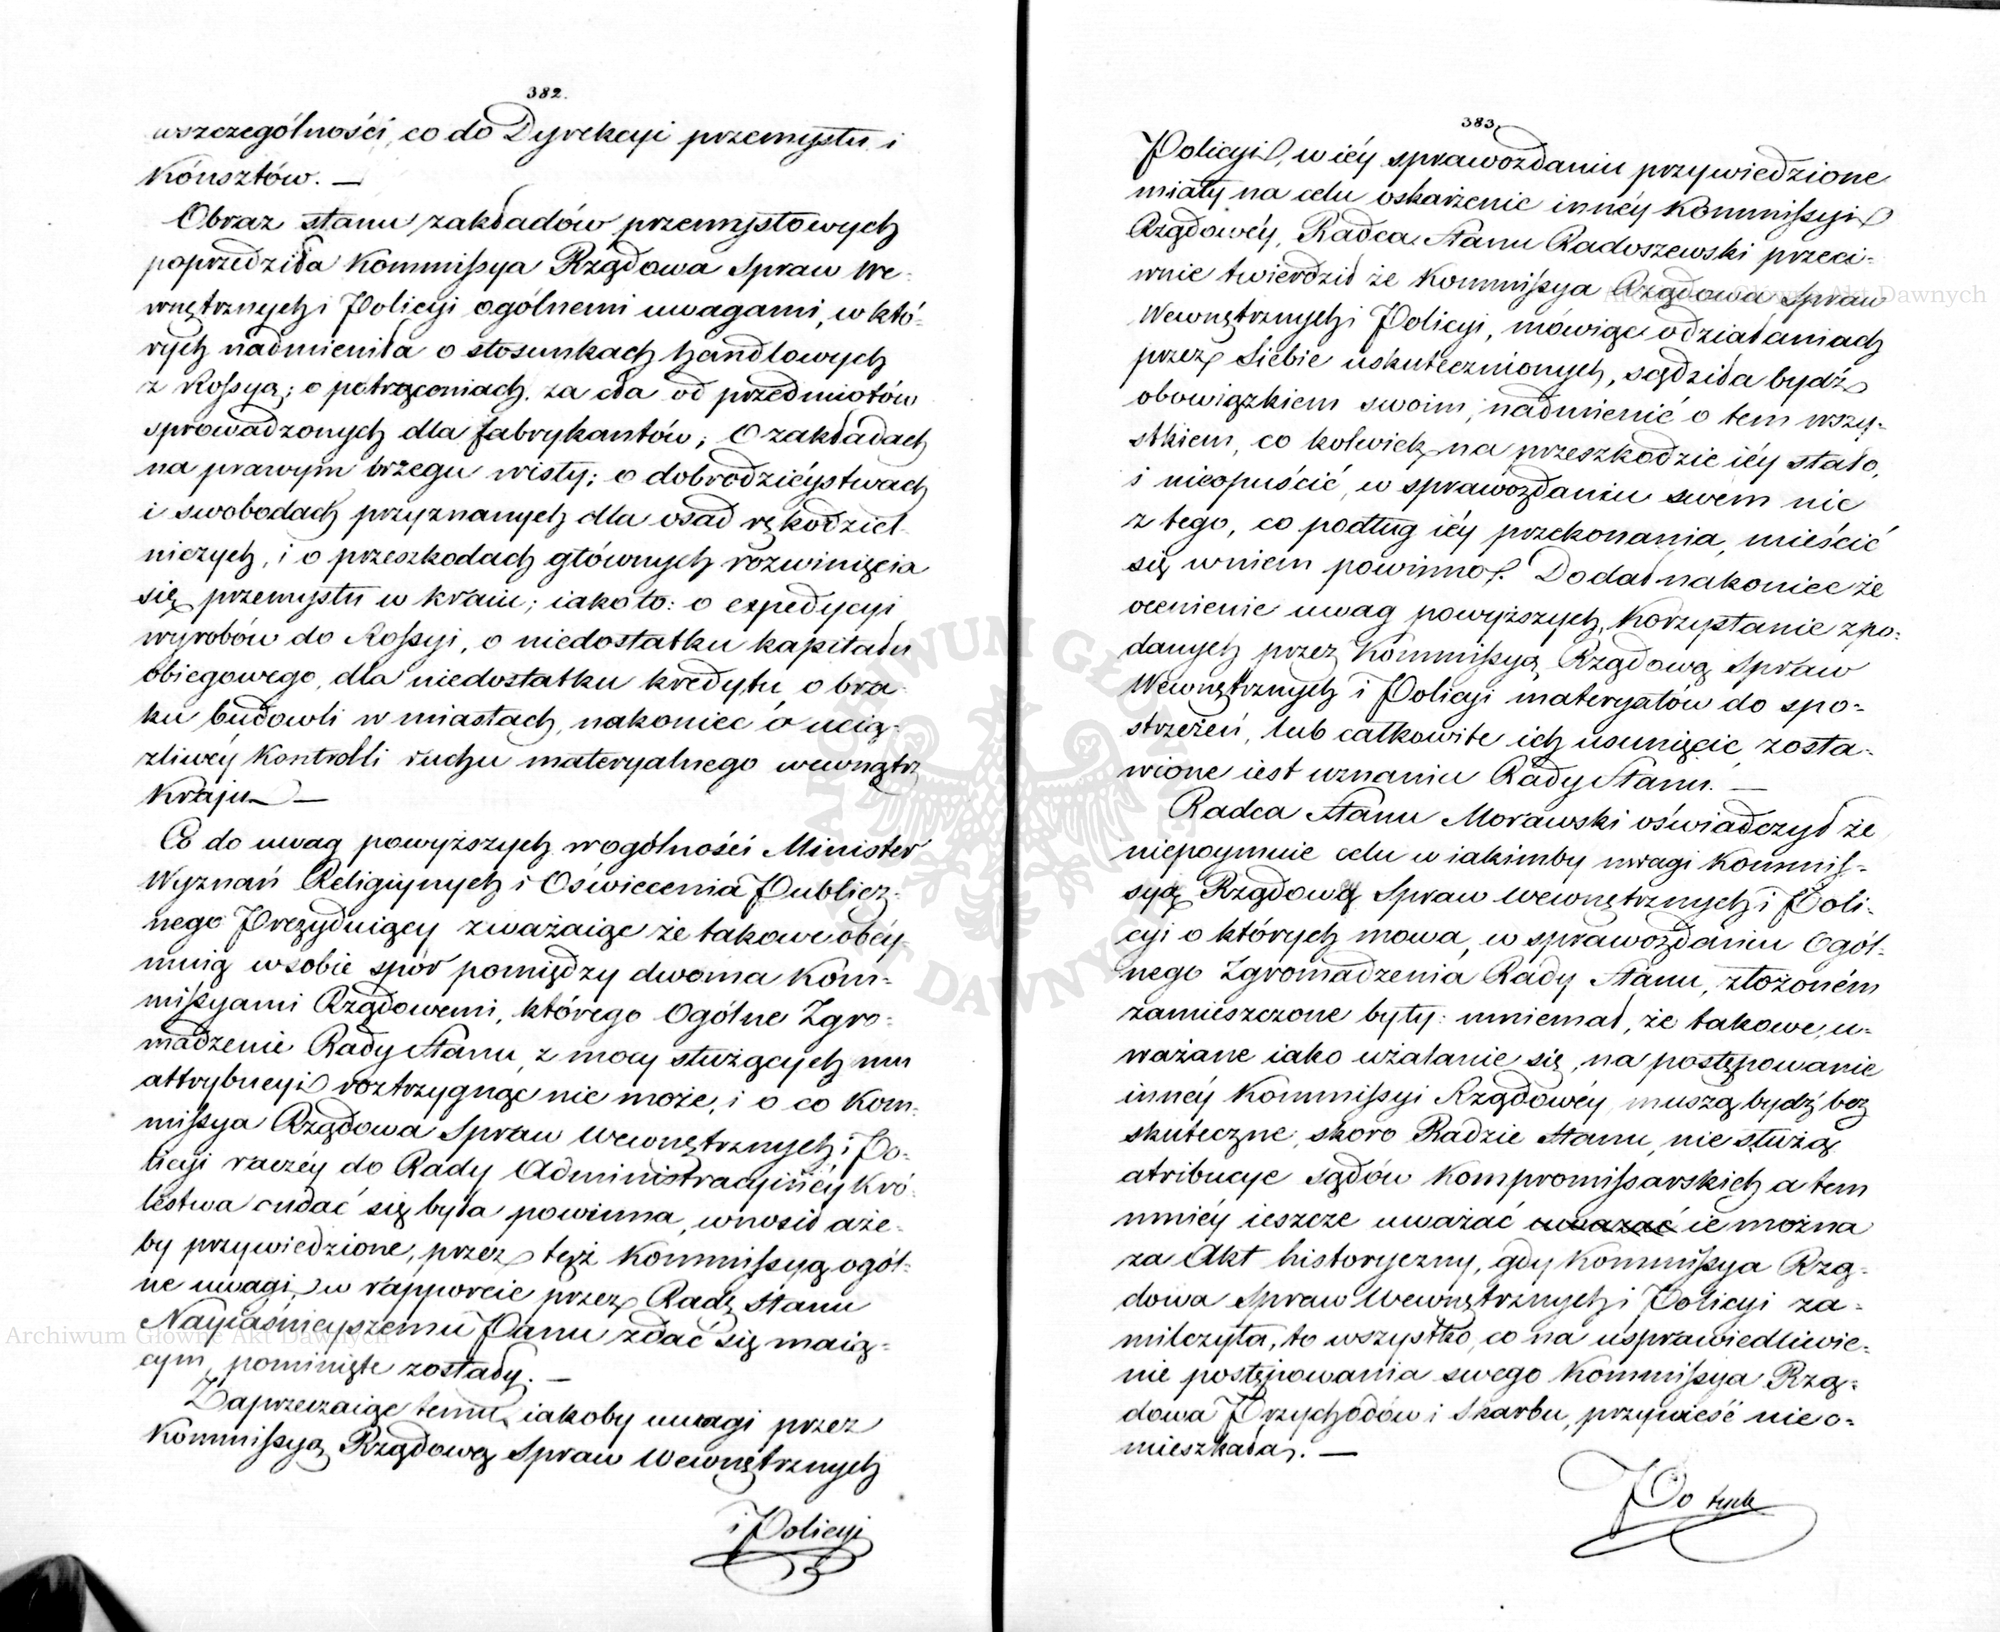 382.
wszczególności, co do Dyrekcyi przemysłu i
Kónsztów. —
Obraz stanu zakładów przemysłowych
poprzedziła Kommissya Rządowa Spraw We-
wnętrznych i Policyi ogólnemi uwagami, w któ-
rych nadmieniła o stosunkach handlowych
z Rossyą; o potrąceniach za cła od przedmiotów
sprowadzonych dla fabrykantów; O zakładach
na prawym brzegu wisły; o dobrodzieystwach
i swobodach przyznanych dla osad rękodziel-
niczych, i o przeszkodach głównych rozwinięcia
się przemysłu w kraiu; iako to: o expedycyi
wyrobów do Rossyi, o niedostatku kapitału
obiegowego, dla niedostatku kredytu, o bra-
ku budowli w miastach, nakoniec o ucią-
żliwéy Kontrolli ruchu materyalnego wewnątrz
Kraju. —
Co do uwag powyższych wogólności Minister
Wyznań Religiynych i Oświecenia Publicz-
nego Prezyduiący zważaiąc że takowe obéy-
muią w sobie spór pomiędzy dwoma Kom-
missyami Rządowemi, którego Ogólne Zgro-
madzenie Rady Stanu, z mocy służących mu
attrybucyi roztrzygnąć nie może, i o co Kom-
missya Rządowa Spraw Wewnętrznych i Po-
licyi raczéy do Rady Administracyinéy Kró-
lestwa udać się była powinna, wnosił aże-
by przywiedzione, przez tęż Kommissyą ogól-
ne uwagi, w rapporcie przez Radę Stanu
Nayiaśnieyszemu Panu zdać się maią-
cym, pominięte zostały. —
Zaprzeczaiąc temu, iakoby uwagi przez
Kommissyą Rządową Spraw Wewnętrznych
i Policyi
383.
Policyi, w iéy sprawozdaniu przywiedzione
miały na celu oskarżenie innéy Kommissyi
Rządowéy, Radca Stanu Radoszewski przeci-
wnie twierdził że Kommissya Rządowa Spraw
Wewnętrznych i Policyi, mówiąc o działaniach
przez Siebie uskutecznionych, sądziła bydź
obowiązkiem swoim, nadmienić o tem wszy-
stkiem, co kolwiek na przeszkodzie iéy stało,
i nieopuścić, w sprawozdaniu swem nic
z tego, co podług iéy przekonania, mieścić
się w niem powinno. Dodał nakoniec że
ocenienie uwag powyższych, Korzystanie z po-
danych przez Kommissyą Rządową Spraw
Wewnętrznych i Policyi materyałów do spo-
strzeżeń, lub całkowite ich usunięcie, zosta-
wione iest uznaniu Rady Stanu. —
Radca Stanu Morawski oświadczył że
niepoymuie celu w iakimby uwagi Kommis-
syą Rządową Spraw Wewnętrznych i Poli-
cyi o których mowa, w sprawozdaniu Ogól-
nego Zgromadzenia Rady Stanu, złożoném
zamieszczone były: mniemał, że takowe, u-
ważane iako użalanie się, na postępowanie
innéy Kommissyi Rządowéy, muszą bydź bez
skuteczne, skoro Radzie Stanu, nie służą
atribucye sądów Kompromissarskich a tem
mniéy ieszcze uważać uważać ie można
za Akt historyczny, gdy Kommissya Rzą-
dowa Spraw Wewnętrznych i Policyi za-
milczyła, to wszystko, co na usprawiedliwie-
nie postępowania swego Kommissya Rzą-
dowa Przychodów i Skarbu, przywieść nie o-
mieszkała. —
Po tych
Archiwum Główne Akt Dawnych
Archiwum Główne Akt Dawnych
ARCHIWUM GŁÓWNE AKT DAWNYCH